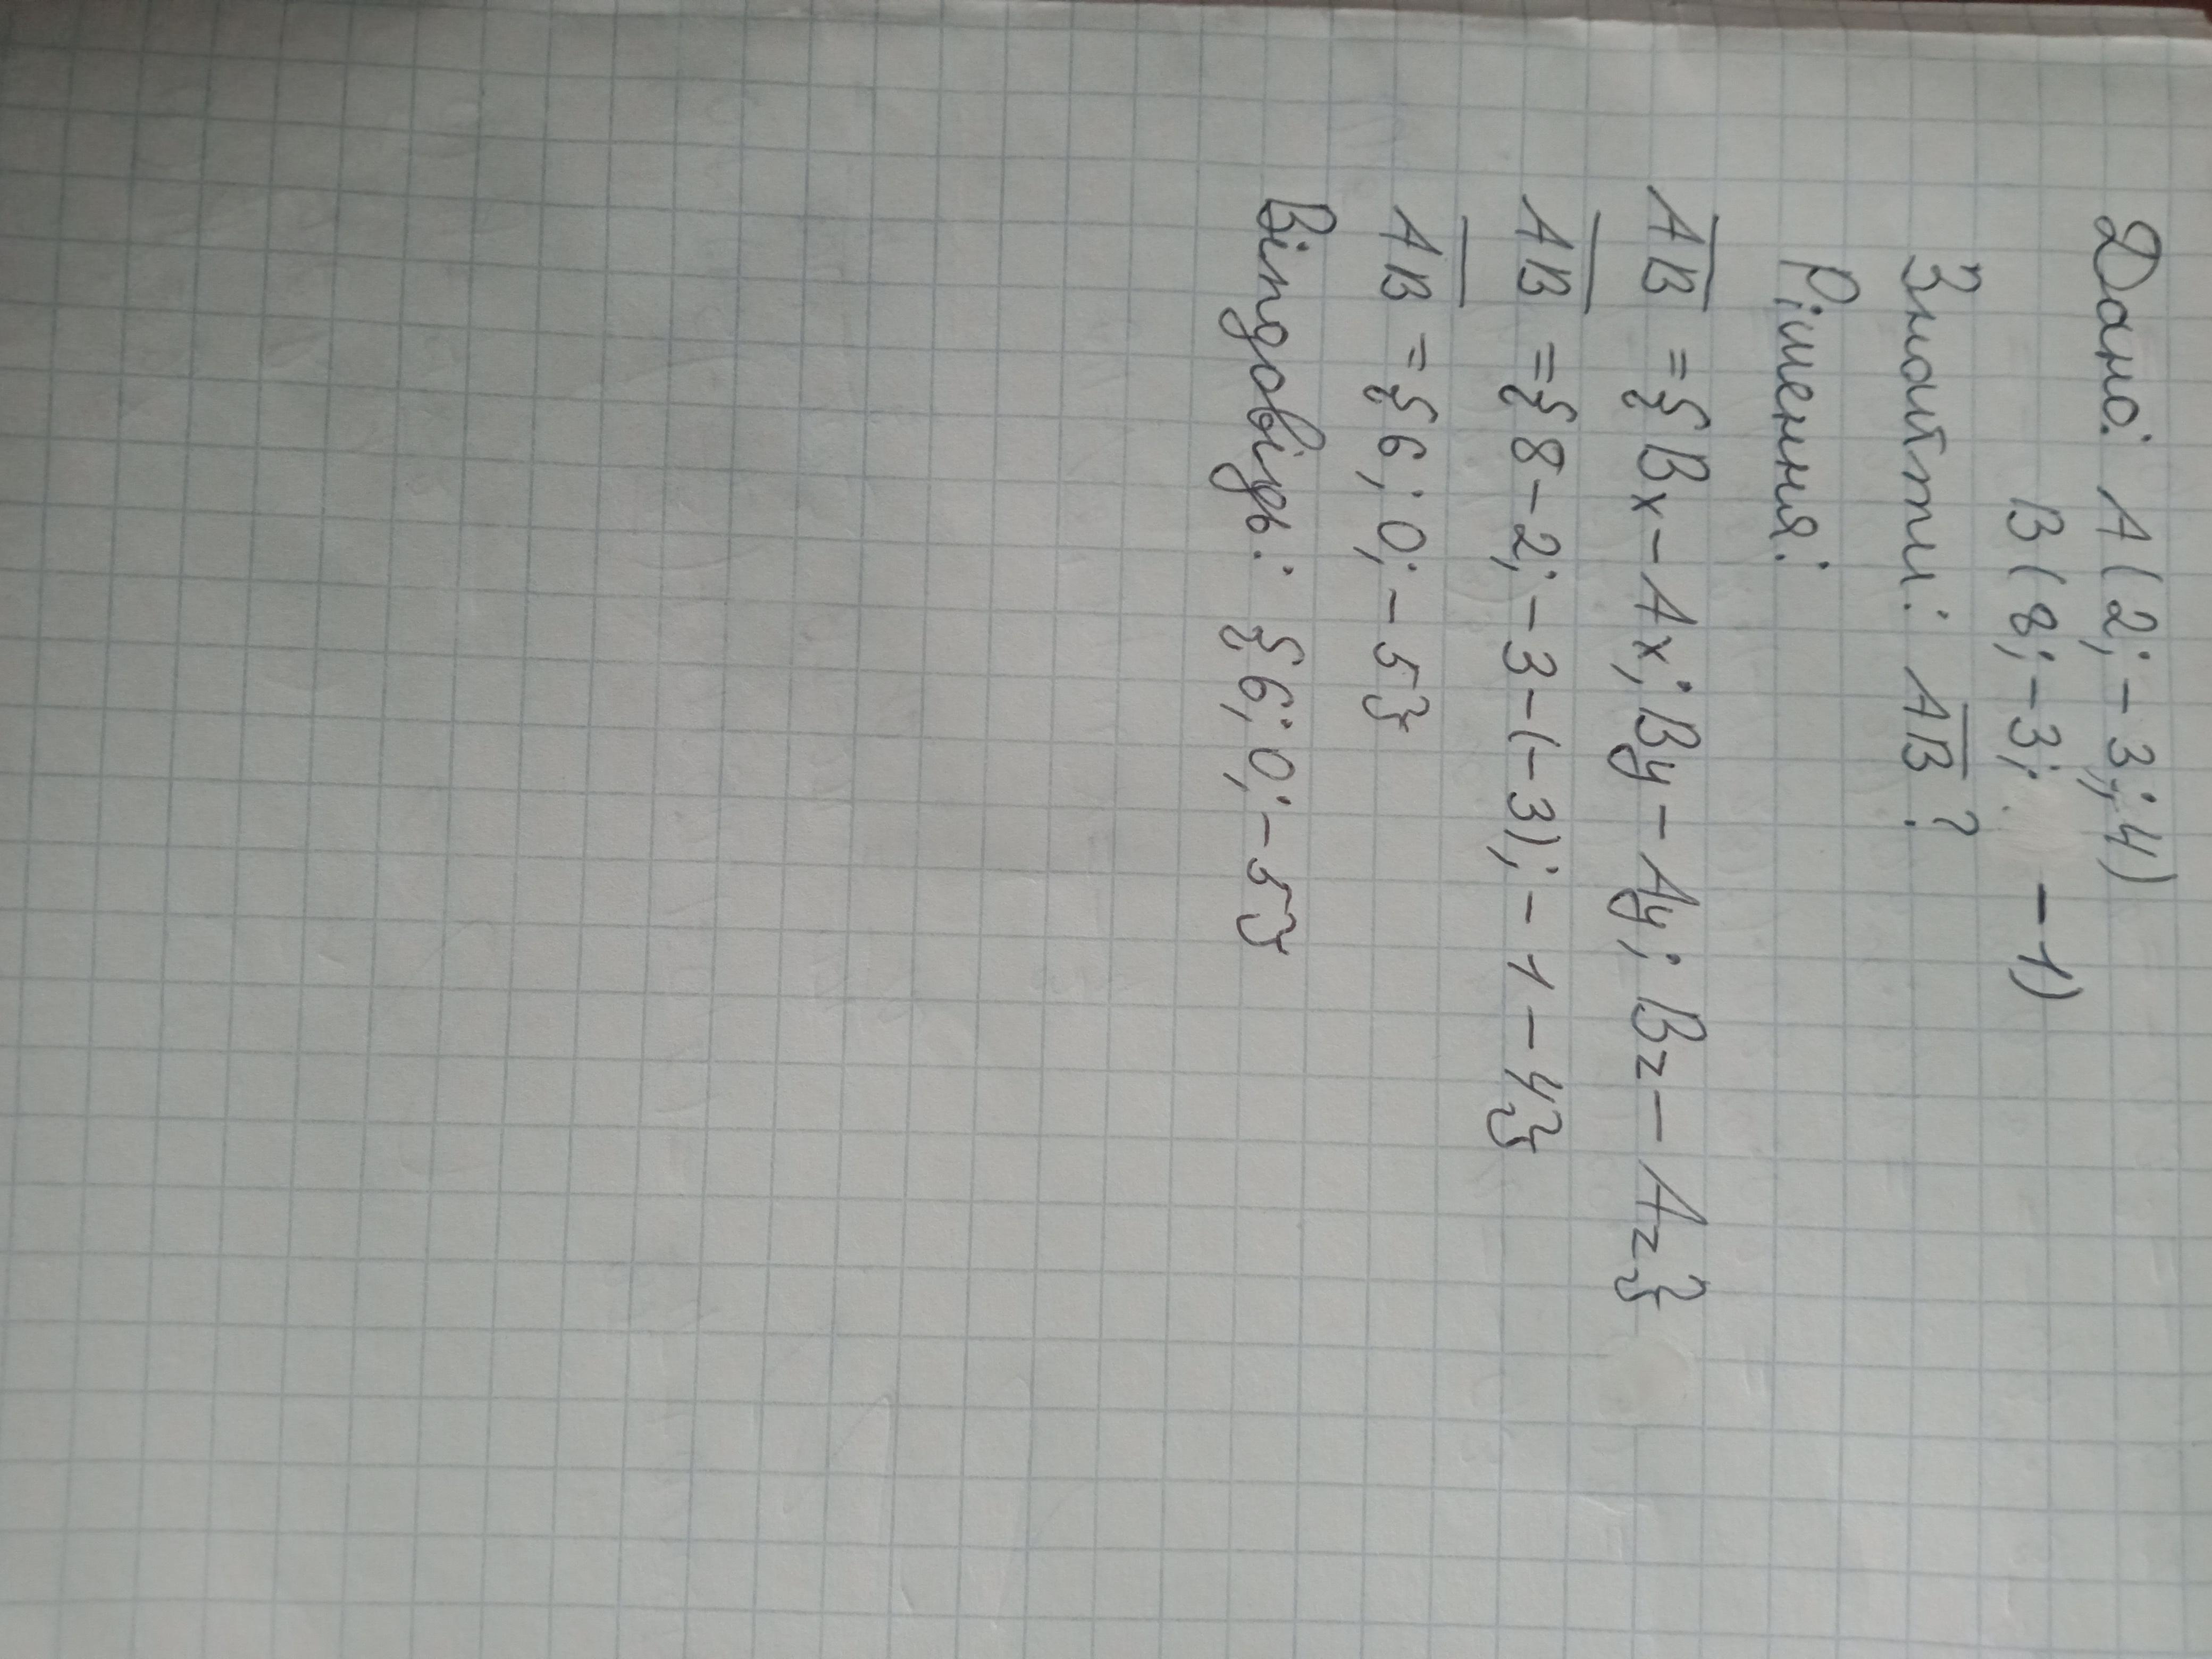 Дано: A(2; -3; 4)
B(8; -3; -1)
Знайти: AB?
Рішення:
AB = {Bx - Ax; By - Ay; Bz - Az}
AB = {8 - 2; -3 - (-3); -1 - 4}
AB = {6; 0; -5}
Відповідь: {6; 0; -5}